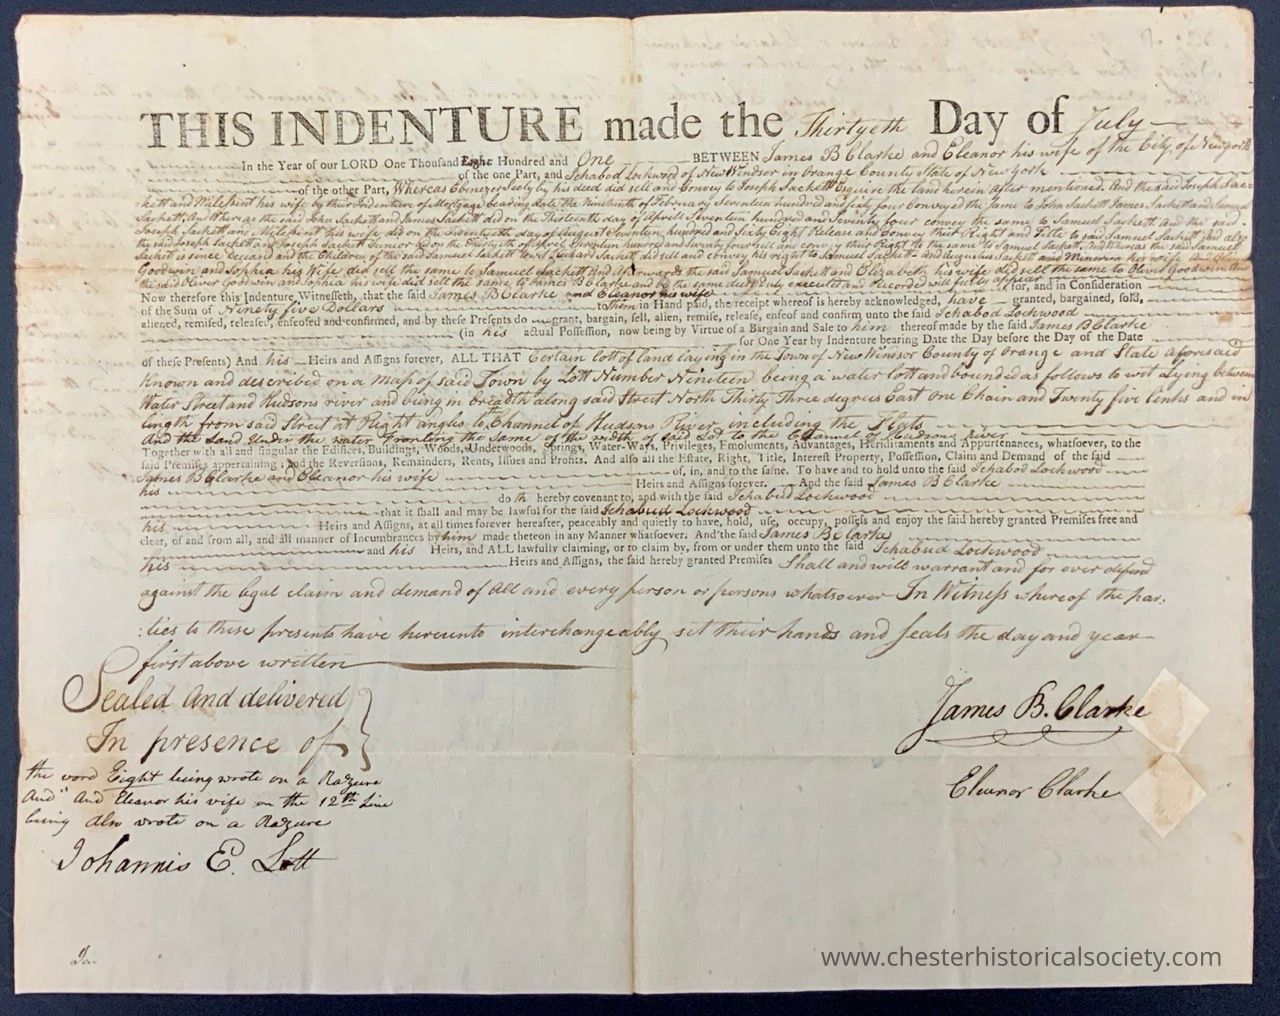 THIS INDENTURE made the Thirtyeth Day of July
In the Year of our LORD One Thousand Eight Hundred and One BETWEEN James B Clarke and Eleanor his wife of the City of Newyork
of the one Part, and Ichabod Lockwood of New Windsor in Orange County State of New york
of the other Part, Whereas Ebenezer Seely by his deed did sell and Convey to Joseph Sackett Esquire the land herein after mentioned. And the said Joseph Sac=
kett and Milessent his wife by their Indenture of Mortgage bearing date the Nineteenth of February Seventeen hundred and sixty four Conveyed the same to John Sackett James Sackett and Samuel
Sackett. And Whereas the said John Sackett and James Sackett did on the Thirteenth day of Aprill Seventeen hundred and Seventy four convey the same to Samuel Sackett. And the said
Joseph Sackett and Milessent his wife did on the Twentyeth day of August Seventeen hundred and Sixty Eight Release and Convey their Right and Title to said Samuel Sackett And also
the said Joseph Sackett and Joseph Sackett Junior did on the Thirtyeth of Seventeen hundred and seventy four sell and convey their Right to the same to Samuel Sackett. And Whereas the said Samuel
Sackett is since Deceased and the Children of the said Samuel Sackett to wit Sackett did sell and convey his right to Samuel Sackett and Augustus Sackett and Minerva his wife And Oliver
Goodwin and Sophia his Wife did sell the same to Samuel Sackett And afterwards the said Samuel Sackett and Elizabeth his wife did sell the same to Oliver Goodwin And
the said Oliver Goodwin and Sophia his wife did sell the same to James B Clarke and by the same deeds Duly executed and Recorded will fully appear for, and in Consideration
Now therefore this Indenture Witnesseth, that the said James B Clarke and Eleanor his wife
of the Sum of Ninety five Dollars to them in Hand paid, the receipt whereof is hereby acknowledged, have granted, bargained, sold,
aliened, remised, released, enfeofed and confirmed, and by these Presents do grant, bargain, sell, alien, remise, release, enfeof and confirm unto the said Ichabod Lockwood
(in his actual Possession, now being by Virtue of a Bargain and Sale to him thereof made by the said James B Clarke
for One Year by Indenture bearing Date the Day before the Day of the Date
of these Presents) And his Heirs and Assigns forever, ALL THAT Certain lott of land laying in the Town of New Windsor County of Orange and State aforesaid
Known and described on a map of said Town by Lott Number Nineteen being a water lott and bounded as follows to wit Lying between
Water Street and Hudsons river and being in breadth along said Street North Thirty Three degrees East one Chain and Twenty five links and in
length from said Street at Right angles to the Channel of Hudsons River including the Flats
And the Land Under the water fronting the Same of the width of said Lot to the Channel of Hudsons river
Together with all and singular the Edifices, Buildings, Woods, Underwoods, Springs, Water-Ways, Privileges, Emoluments, Advantages, Heriditaments and Appurtenances, whatsoever, to the
said Premises appertaining; and the Reversions, Remainders, Rents, Issues and Profits. And also all the Estate, Right, Title, Interest Property, Possession, Claim and Demand of the said
James B Clarke and Eleanor his wife of, in, and to the same. To have and to hold unto the said Ichabod Lockwood
his Heirs and Assigns forever. And the said James B Clarke
doth hereby covenant to, and with the said Ichabud Lockwood
that it shall and may be lawful for the said Ichabud Lockwood
his Heirs and Assigns, at all times forever hereafter, peaceably and quietly to have, hold, use, occupy, possess and enjoy the said hereby granted Premises free and
clear, of and from all, and all manner of Incumbrances by him made thereon in any Manner whatsoever. And the said James B Clarke
and his Heirs, and ALL lawfully claiming, or to claim by, from or under them unto the said Ichabud Lockwood
his Heirs and Assigns, the said hereby granted Premises Shall and will warrant and for ever defend
against the legal claim and demand of All and every person or persons whatsoever In Witness whereof the par,
:ties to these presents have hereunto interchangeably set their hands and seals the day and year
first above written
Sealed and delivered
In presence of
James B. Clarke
the word Eight being wrote on a Razure
And " And Eleanor his wife on the 12th Line
being also wrote on a Razure
Eleanor Clarke
Johannis E. Lott
www.chesterhistoricalsociety.com